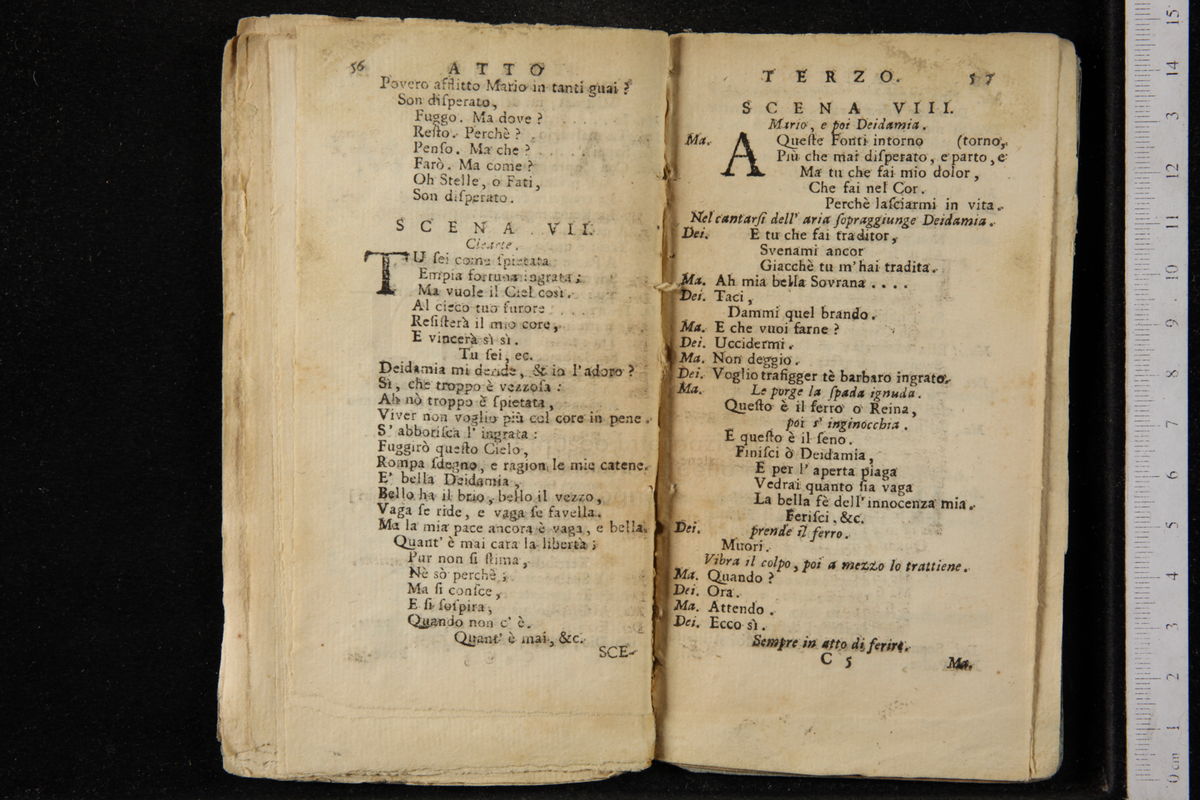 56 ATTO
Povero afflitto Mario in tanti guai ?
Son diſperato,
Fuggo. Ma dove ?
Reſto. Perchè ?
Penſo. Ma che ?
Farò. Ma come ?
Oh Stelle, o Fati,
Son diſperato.
SCENA VII.
Clearte.
TU ſei come ſpietata
Empia fortuna ingrata ;
Ma vuole il Ciel così.
Al cieco tuo furore
Reſiſterà il mio core,
E vincerà sì sì.
Tu ſei, ec.
Deidamia mi deride, & io l'adoro ?
Sì, che troppo è vezzoſa :
Ah nò troppo è ſpietata,
Viver non voglio più col core in pene.
S' abboriſca l' ingrata :
Fuggirò queſto Cielo,
Rompa ſdegno, e ragion le mie catene.
E' bella Deidamia,
Bello ha il brio, bello il vezzo,
Vaga ſe ride, e vaga ſe favella.
Ma la mia pace ancora è vaga, e bella.
Quant' è mai cara la libertà ;
Pur non ſi ſtima,
Nè sò perchè ;
Ma ſi conſce,
E ſi ſoſpira,
Quando non c' è.
Quant' è mai, &c.
SCE-
TERZO. 57
SCENA VIII.
Mario, e poi Deidamia.
Ma. A Queſte Fonti intorno (torno,
Più che mai diſperato, e parto, e
Ma tu che fai mio dolor,
Che fai nel Cor.
Perchè laſciarmi in vita.
Nel cantarſi dell' aria ſopraggiunge Deidamia.
Dei. E tu che fai traditor,
Svenami ancor
Giacchè tu m'hai tradita.
Ma. Ah mia bella Sovrana . . . .
Dei. Taci,
Dammi quel brando.
Ma. E che vuoi farne ?
Dei. Uccidermi.
Ma. Non deggio.
Dei. Voglio trafigger tè barbaro ingrato.
Ma. Le porge la ſpada ignuda.
Queſto è il ferro o Reina,
poi s' inginocchia.
E queſto è il ſeno.
Finiſci ò Deidamia,
E per l' aperta piaga
Vedrai quanto ſia vaga
La bella fè dell'innocenza mia.
Feriſci, &c.
Dei. prende il ferro.
Muori.
Vibra il colpo, poi a mezzo lo trattiene.
Ma. Quando ?
Dei. Ora.
Ma. Attendo.
Dei. Ecco sì.
Sempre in atto di ferire.
C 5 Ma.
0 cm 1 2 3 4 5 6 7 8 9 10 11 12 13 14 15